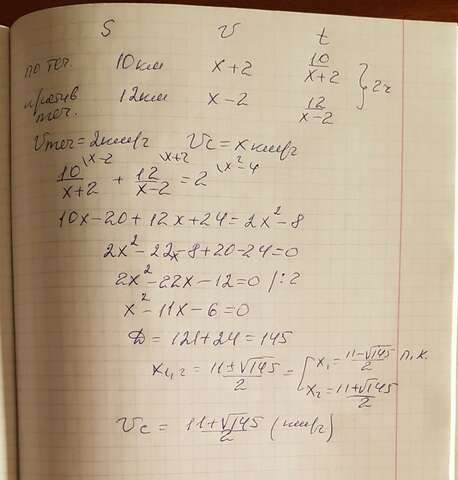 S v t
по теч. 10км x+2 10/x+2
против теч. 12км x-2 12/x-2 } 2ч
Vтеч=2км/ч Vс=x км/ч
10/x+2 \x-2 + 12/x-2 \x+2 = 2 \x²-4
10x-20+12x+24=2x²-8
2x²-22x-8+20-24=0
2x²-22x-12=0 |:2
x²-11x-6=0
D=121+24=145
x1,2 = 11±√145/2 = [ x1=11-√145/2 п.к.
x2=11+√145/2
Vс = 11+√145/2 (км/ч)